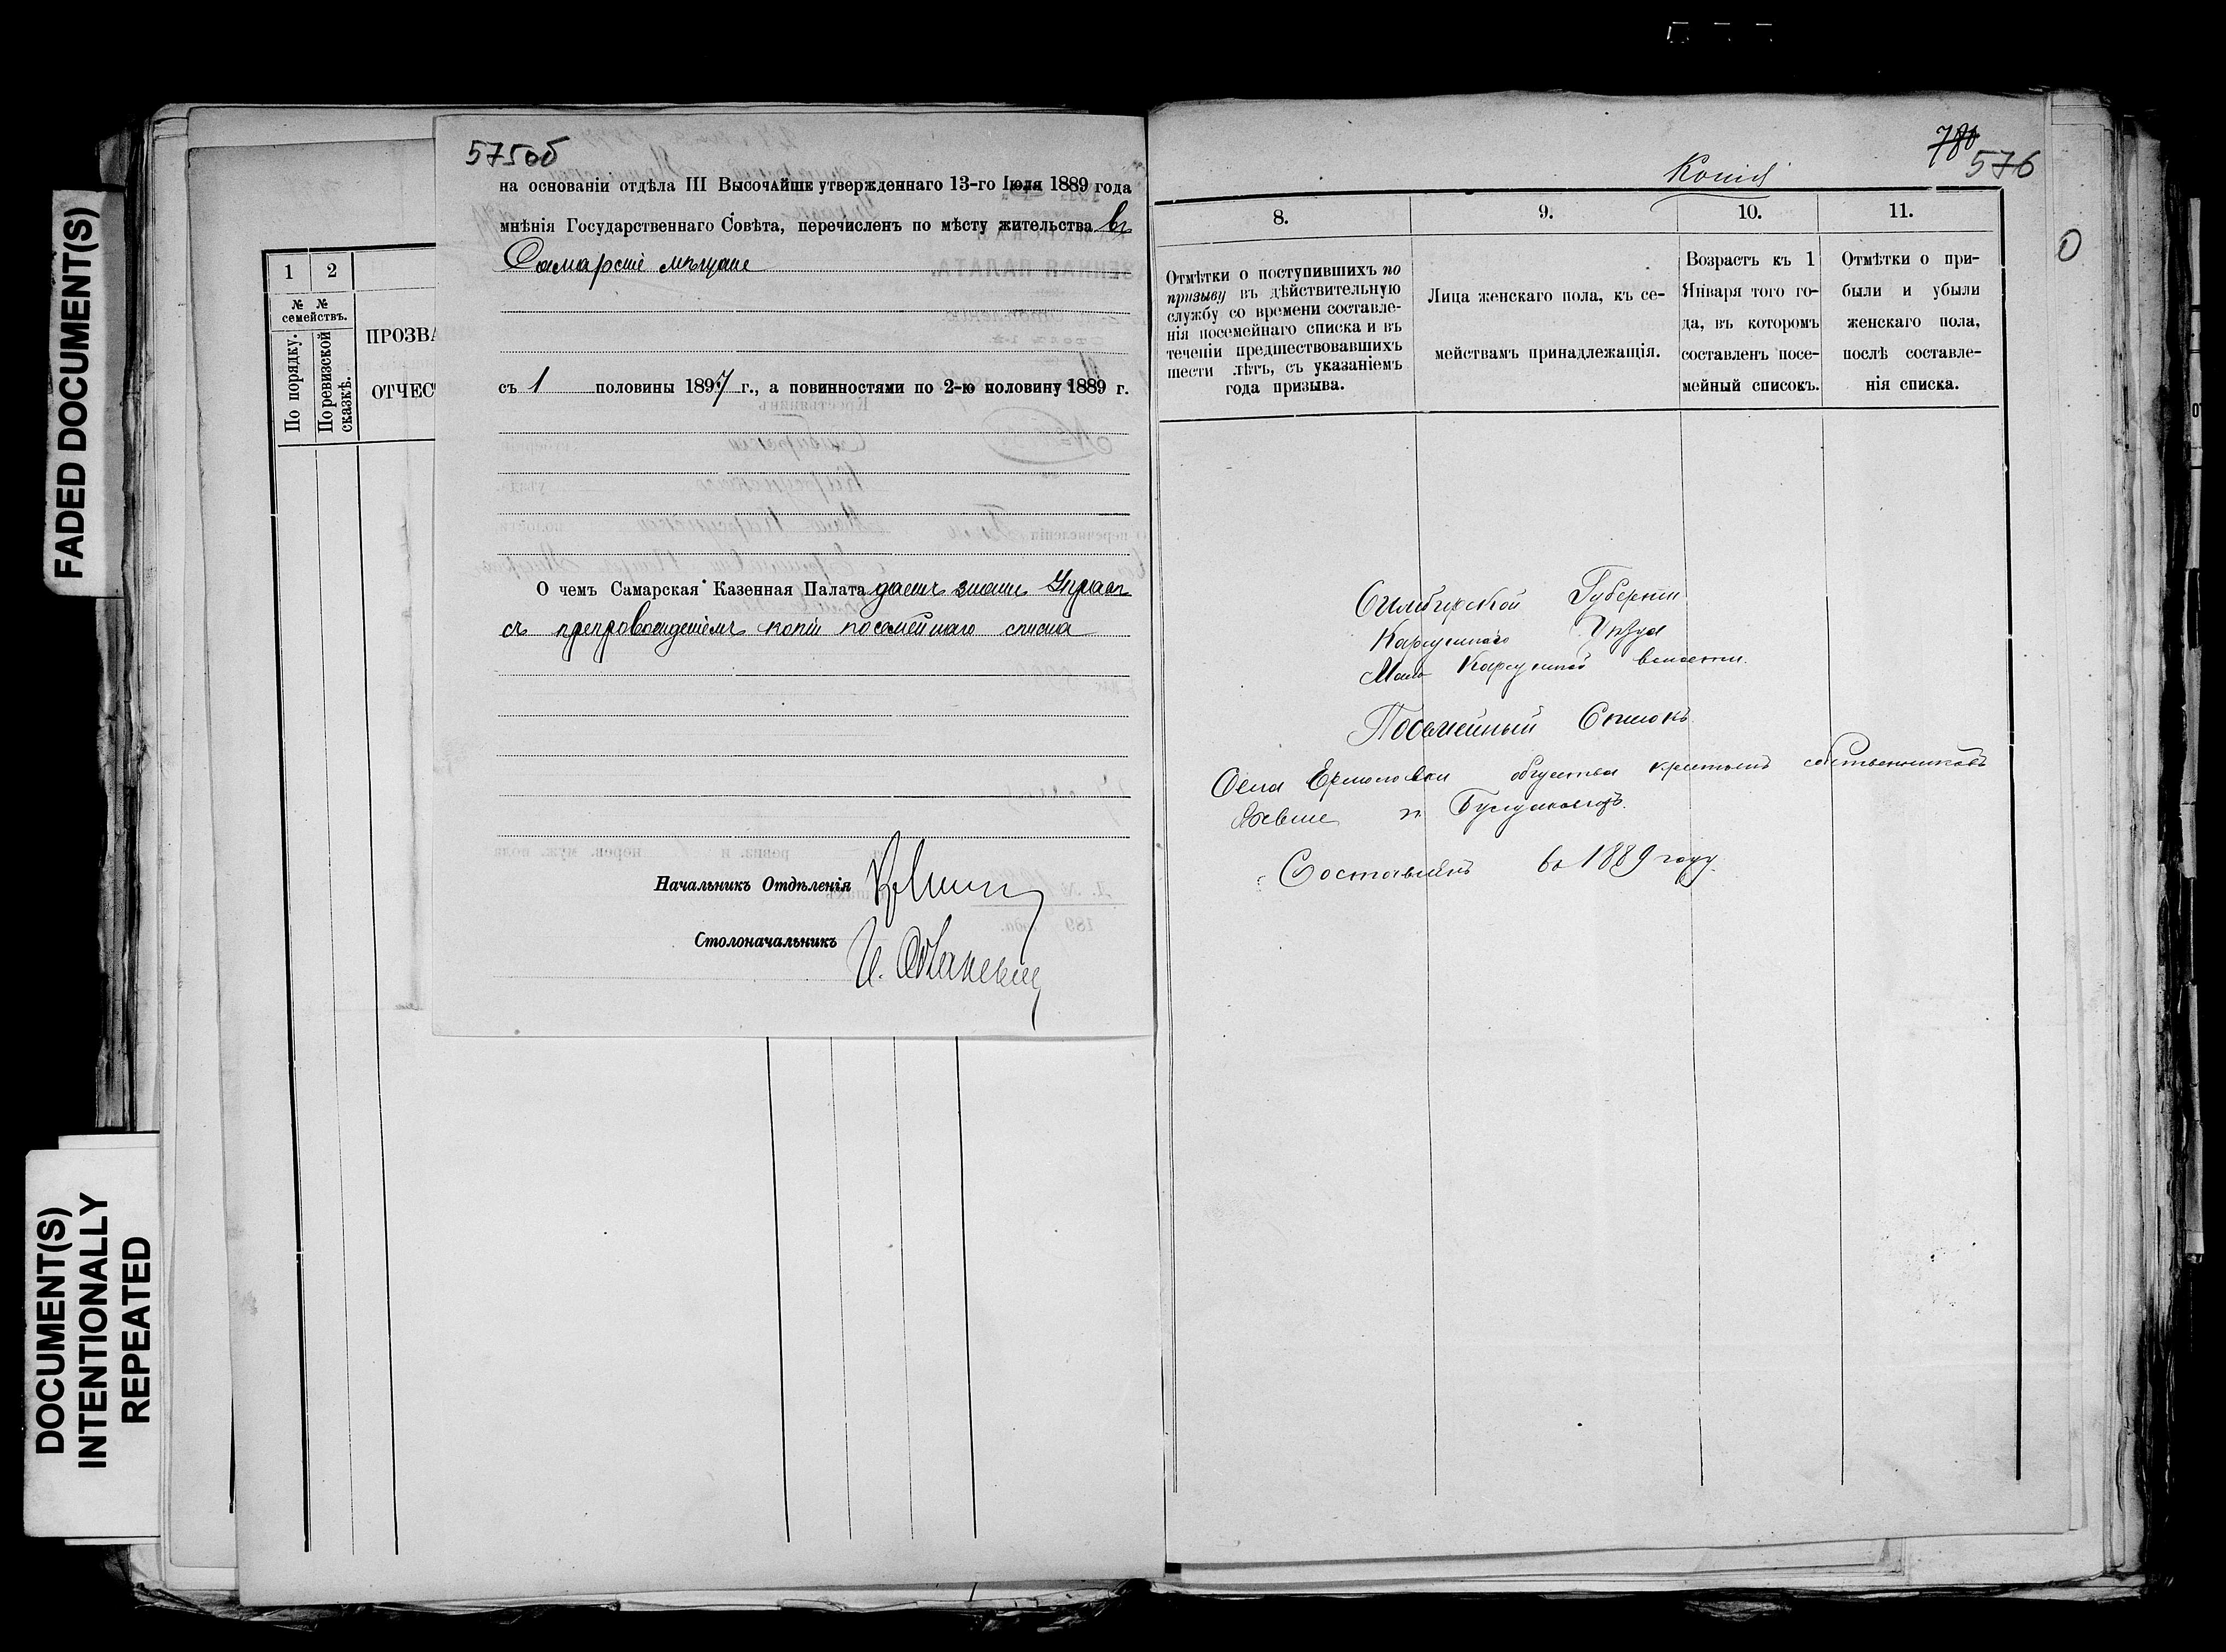 FADED DOCUMENT(S)
DOCUMENT(S)
INTENTIONALLY
REPEATED
1 2
№ №
семействъ.
По порядку.
По ревизской
сказкѣ.
ПРОЗВА
ОТЧЕС
575об
на основаніи отдѣла III Высочайше утвержденнаго 13-го Іюля 1889 года
мнѣнія Государственнаго Совѣта, перечисленъ по мѣсту жительства въ
Самарскіе мѣщане
съ 1 половины 1897 г., а повинностями по 2-ю половину 1889 г.
О чемъ Самарская Казенная Палата даетъ знать Управѣ
съ препровожденіемъ копіи посемейнаго списка
Начальникъ Отдѣленія
Столоначальникъ
780
576
Копія
8. 9. 10. 11.
Отмѣтки о поступившихъ по
призыву въ дѣйствительную
службу со времени составле-
нія посемейнаго списка и въ
теченіи предшествовавшихъ
шести лѣтъ, съ указаніемъ
года призыва.
Лица женскаго пола, къ се-
мействамъ принадлежащія.
Возрастъ къ 1
Января того го-
да, въ которомъ
составленъ посе-
мейный списокъ.
Отмѣтки о при-
были и убыли
женскаго пола,
послѣ составле-
нія списка.
0
Симбирской Губерніи
Карсунскаго Уѣзда
Мало Карсунской волости.
Посемейный Списокъ
Села Ермоловки общества крестьянъ собственниковъ
Составленъ въ 1889 году.